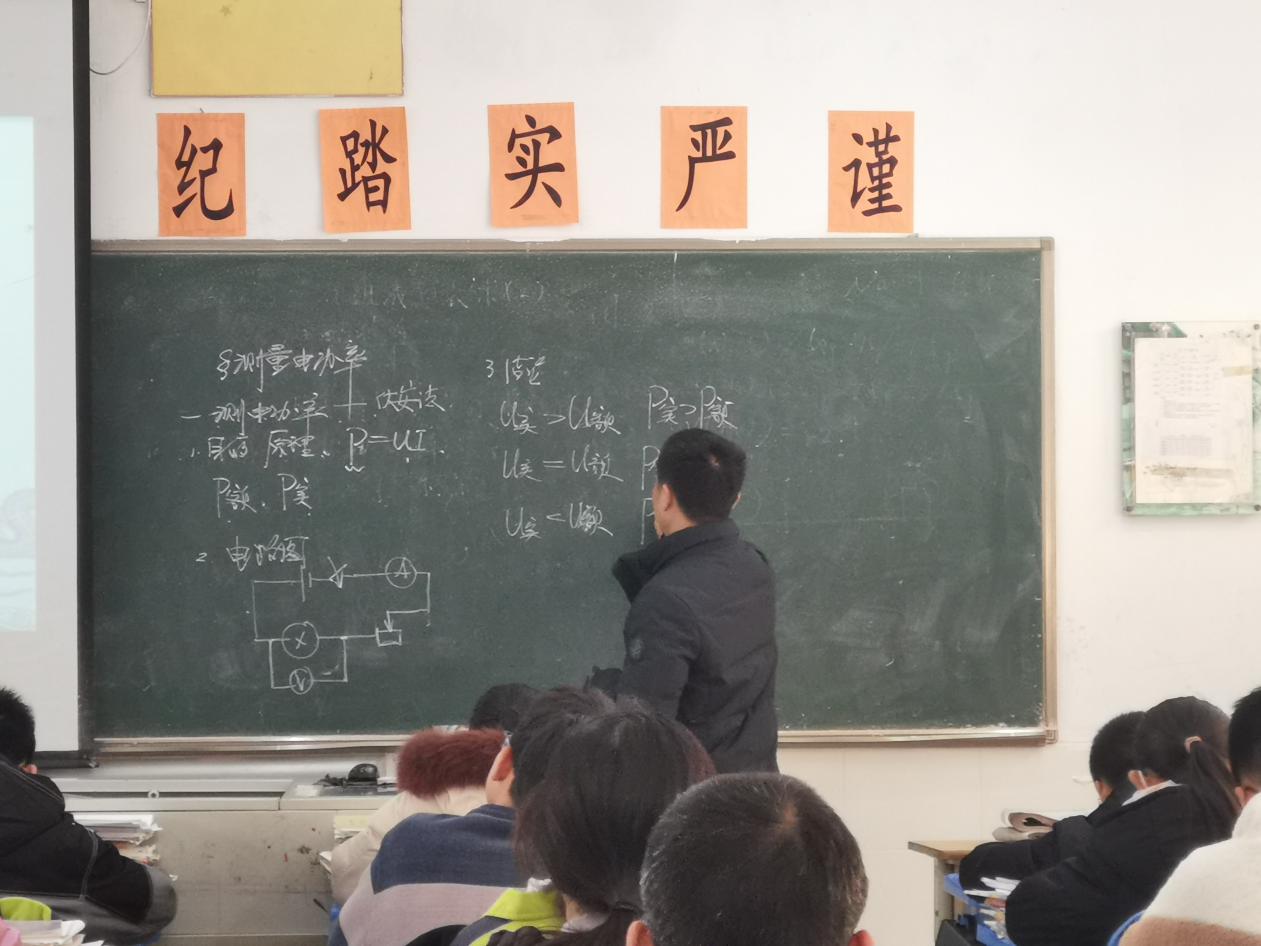 纪 踏 实 严 谨
§测量电功率
一测电功率 — 伏安法
1. 目的 原理、P=UI.
P额、P实
2 电路图
A
V
3 结论
U实>U额 P实>P额
U实=U额 P
U实<U额 P